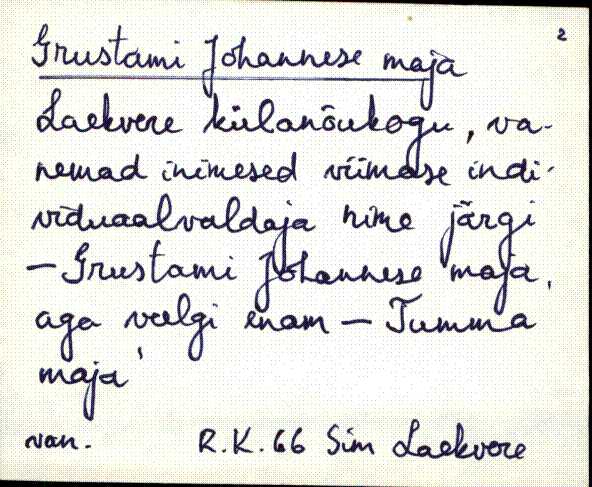 2
Grustami Johannese maja
Laekvere külanõukogu, va-
nemad inimesed viimase indi-
viduaalvaldaja nime järgi
— Grustami Johannese maja,
aga veelgi enam — Tumma
maja'
van. R.K.66 Sim Laekvere